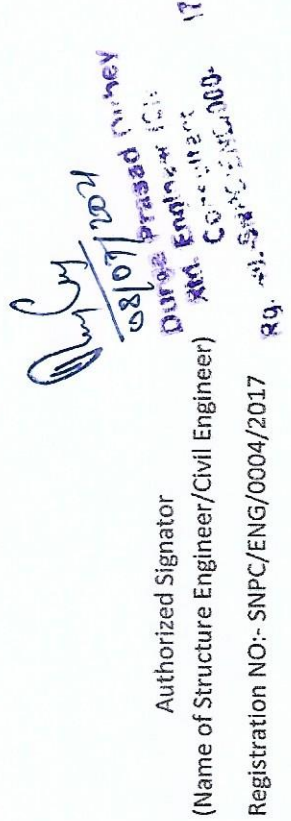 08/07/2021
Durga Prasad
Engineer
Consultant
Rg.
17
Authorized Signator
(Name of Structure Engineer/Civil Engineer)
Registration NO:- SNPC/ENG/0004/2017